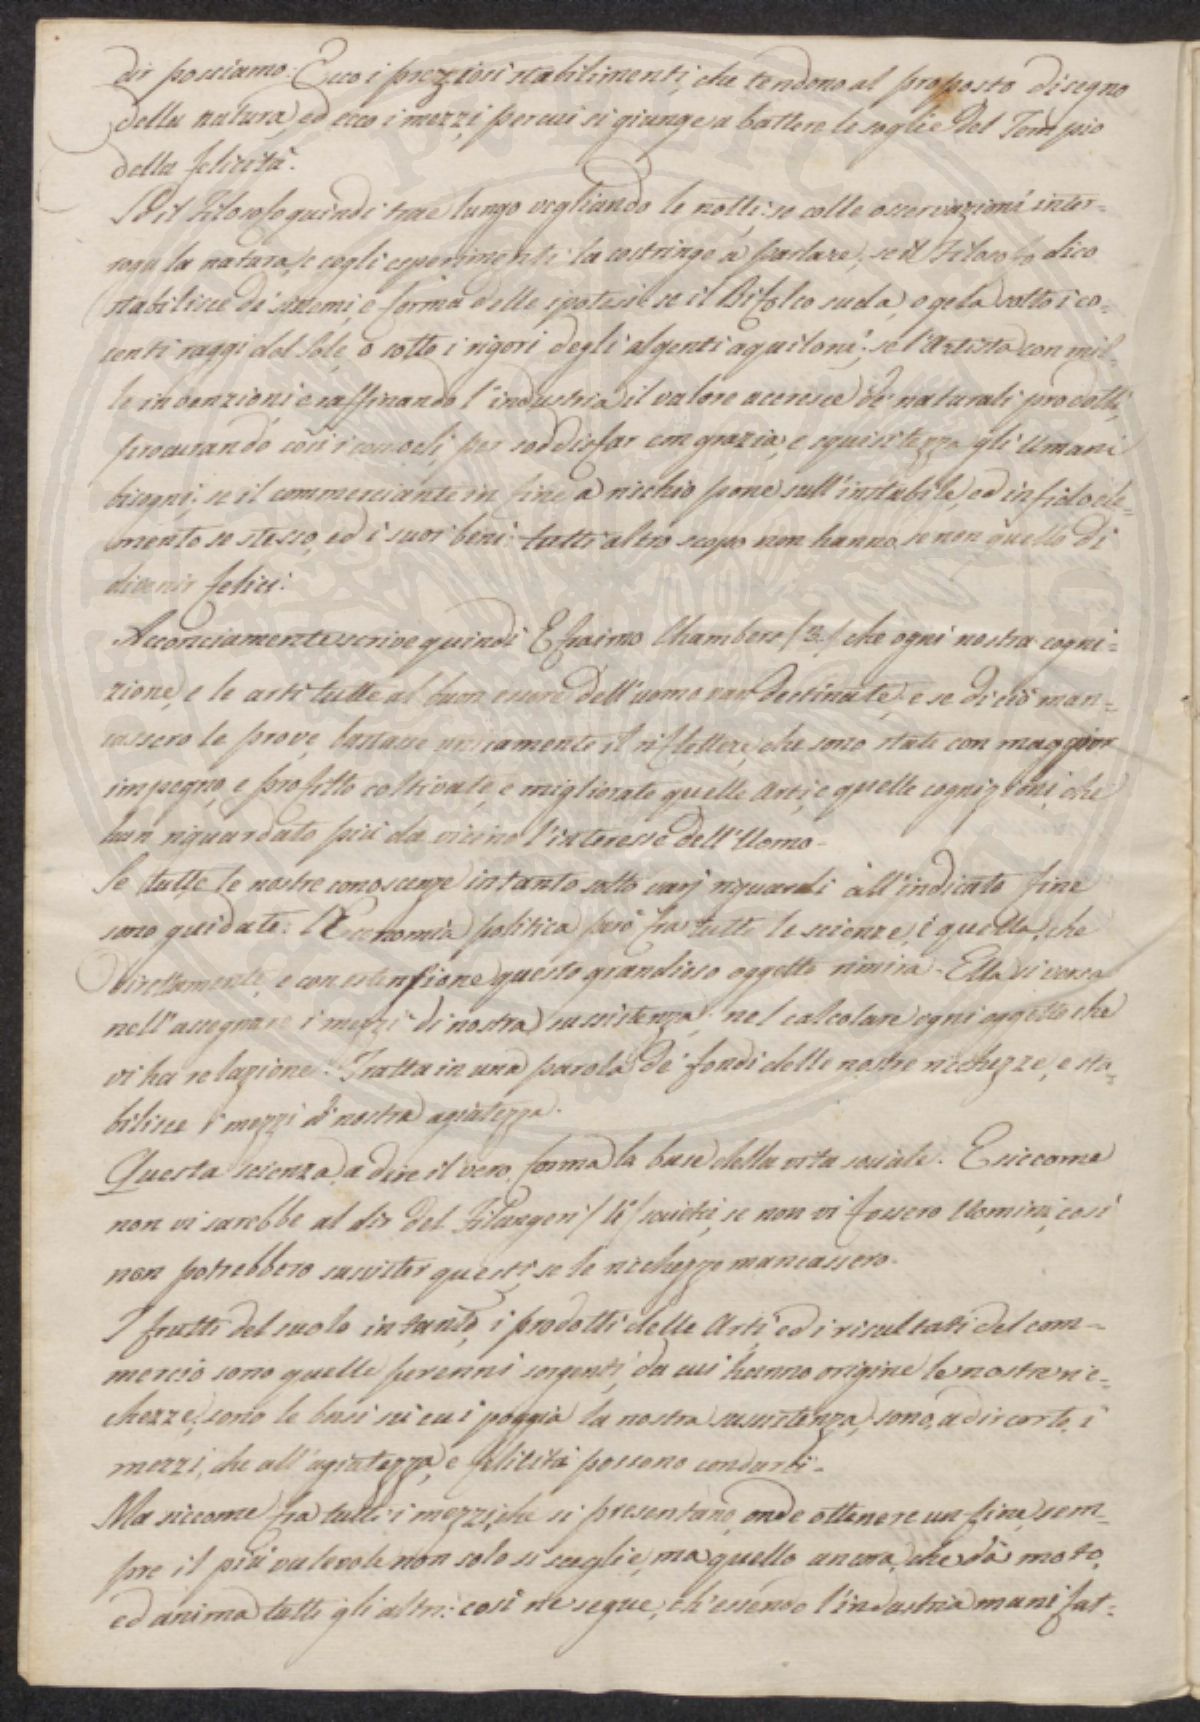 dir possiamo: Ecco i preziosi stabilimenti, che tendono al proposto disegno
della natura, ed ecco i mezzi per cui si giunge a battere le soglie del Tempio
della felicità.
Se il Filosofo quindi trae lungo vegliando le notti: se colle osservazioni inter=
roga la natura, e cogli esperimenti la costringe a parlare; se il Filosofo dico
stabilisce de' sistemi, e forma delle ipotesi: se il Bifolco suda, o gela sotto i co=
centi raggi del Sole, o sotto i rigori degli algenti aquiloni: se l'Artista con mil=
le invenzioni e raffinando l'industria il valore accresce de' naturali prodotti,
procurando così i comodi, per soddisfar con grazia, e squisitezza gli Umani
bisogni: se il commerciante in fine a rischio pone sull'instabile, ed infido ele=
mento se stesso, ed i suoi beni: tutti altro scopo non hanno, se non quello di
divenir felici:
Acconciamente scrive quindi Efraimo Chambers /3./ che ogni nostra cogni=
zione, e le arti tutte al buon essere dell'uomo van destinate, e se di ciò man=
cassero le prove, bastasse unicamente il riflettere, che sono state con maggior
impegno, e profitto coltivate, e migliorate quelle Arti, e quelle cognizioni, che
han riguardato più da vicino l'interesse dell'Uomo.
Se tutte le nostre conoscenze intanto sotto varj riguardi all'indicato fine
sono guidate: l'Economia politica però fra tutte le scienze, è quella, che
direttamente, e con estensione questo grandioso oggetto rimira. Ella si versa
nell'assegnare i mezzi di nostra sussistenza; nel calcolare ogni oggetto che
vi ha relazione: Tratta in una parola de' fondi delle nostre ricchezze, e sta=
bilisce i mezzi di nostra agiatezza.
Questa scienza, a dire il vero, forma la base della vita sociale. E siccome
non vi sarebbe al dir del Filangeri /4/ società, se non vi fossero Uomini, così
non potrebbero sussister questi, se le ricchezze mancassero.
I frutti del suolo intanto, i prodotti delle Arti, ed i risultati del com=
mercio sono quelle perenni sorgenti, da cui hanno origine le nostre ric=
chezze, sono le basi su cui poggia la nostra sussistenza, sono, a dir corto, i
mezzi, che all'agiatezza, e felicità possono condurci.
Ma siccome fra tutti i mezzi, che si presentano, onde ottenere un fine, sem=
pre il più valevole non solo si sceglie, ma quello ancora, che dà moto,
ed anima tutti gli altri: così ne segue, ch'essendo l'industria manifat=